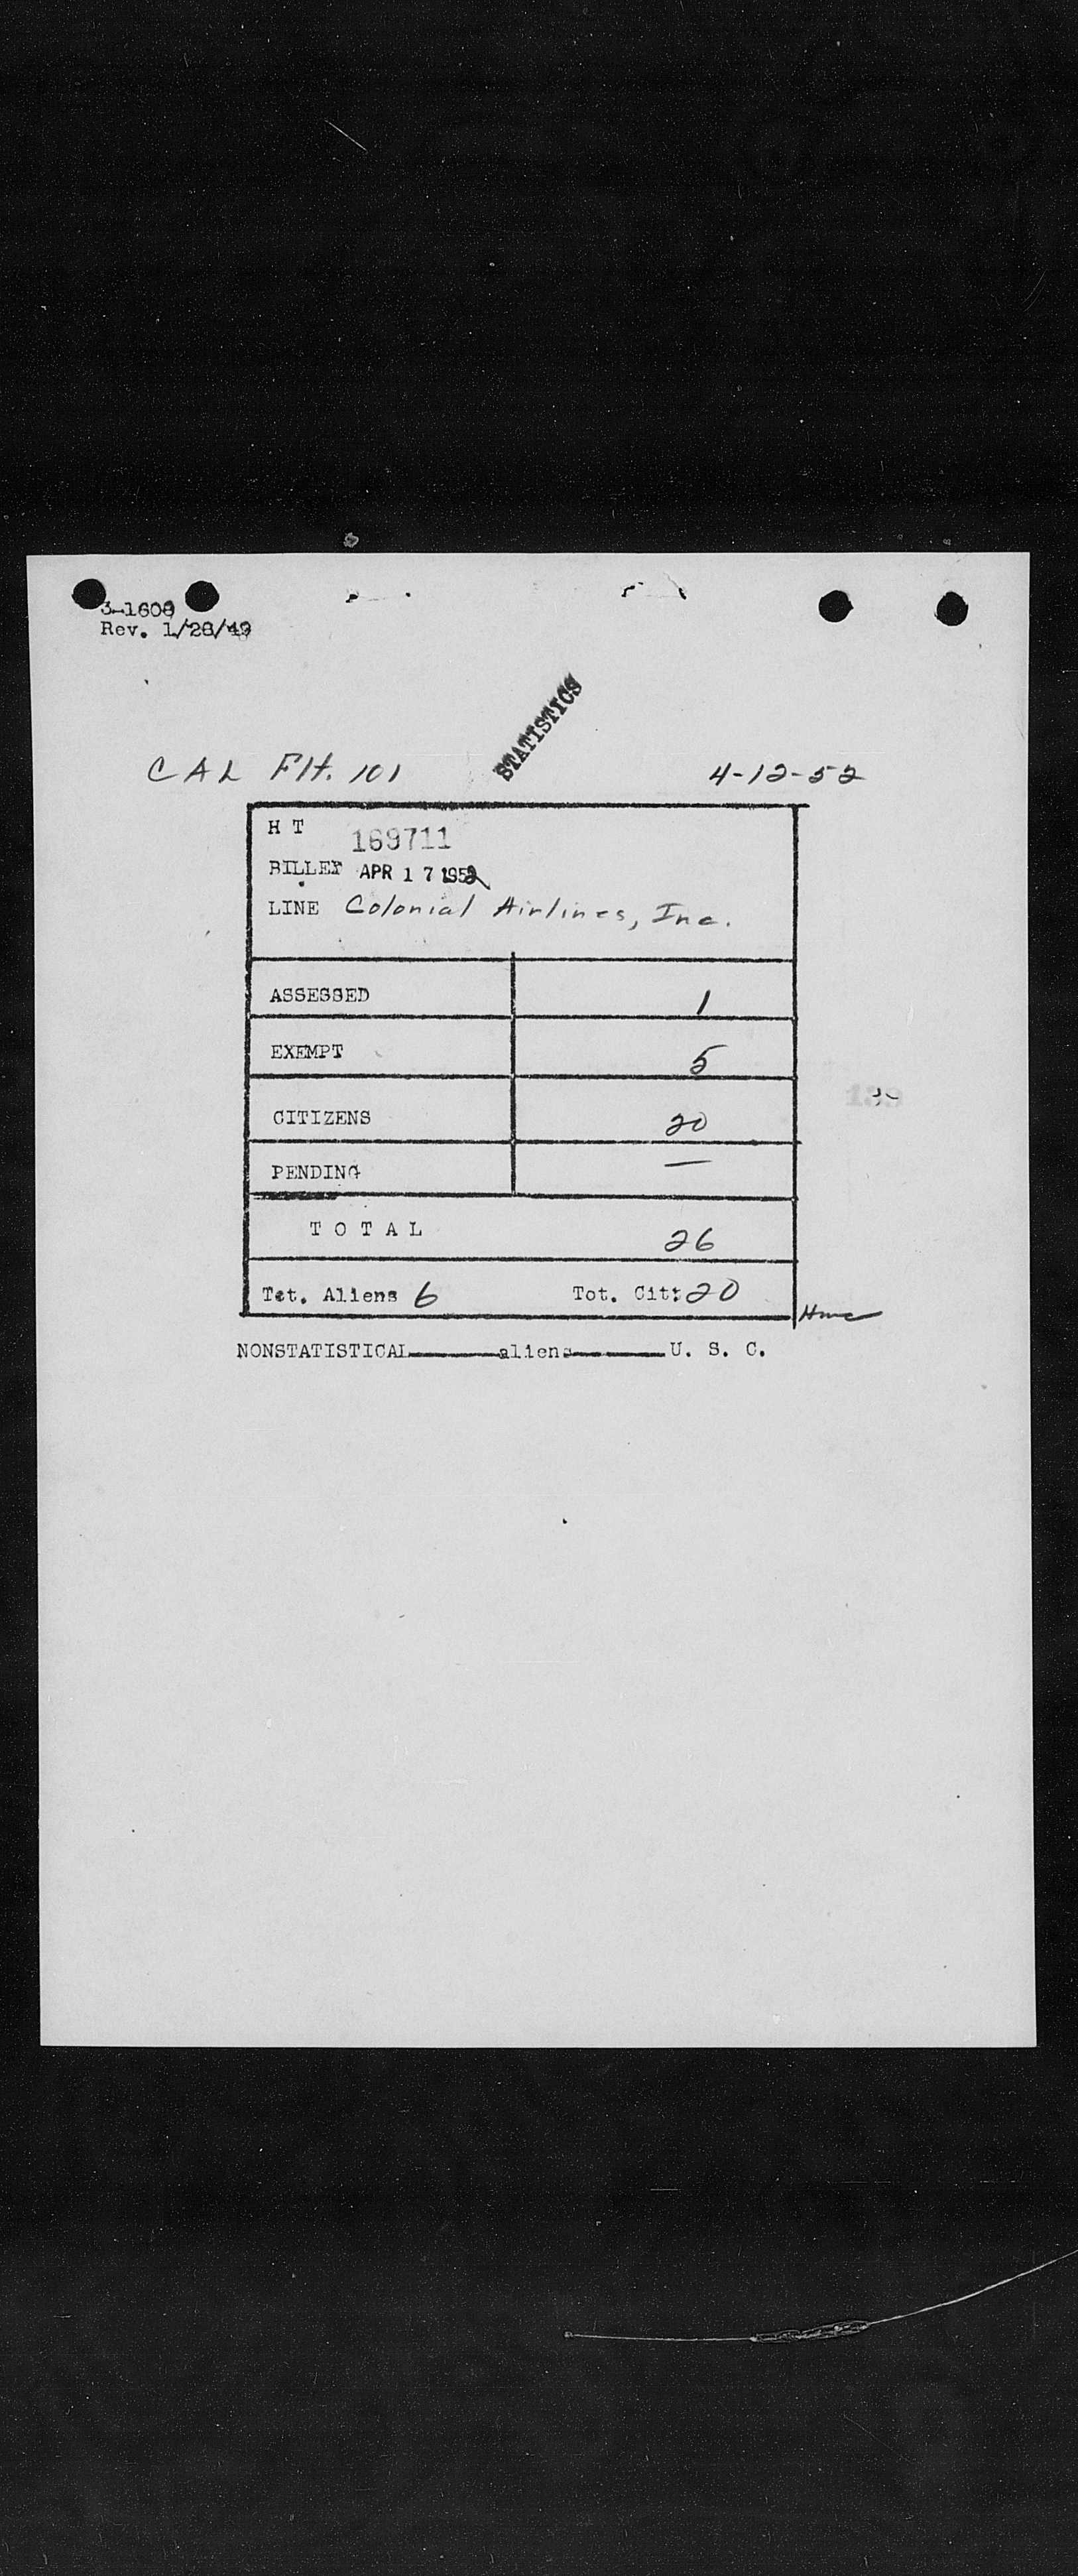 3-1608
Rev. 1/28/49
STATISTICS
CAL Flt. 101 4-12-52
H T 169711
BILLED APR 17 1952
LINE Colonial Airlines, Inc.
ASSESSED 1
EXEMPT 5
CITIZENS 20
PENDING —
TOTAL 26
Tot. Aliens 6 Tot. Cit: 20
NONSTATISTICAL aliens U. S. C.